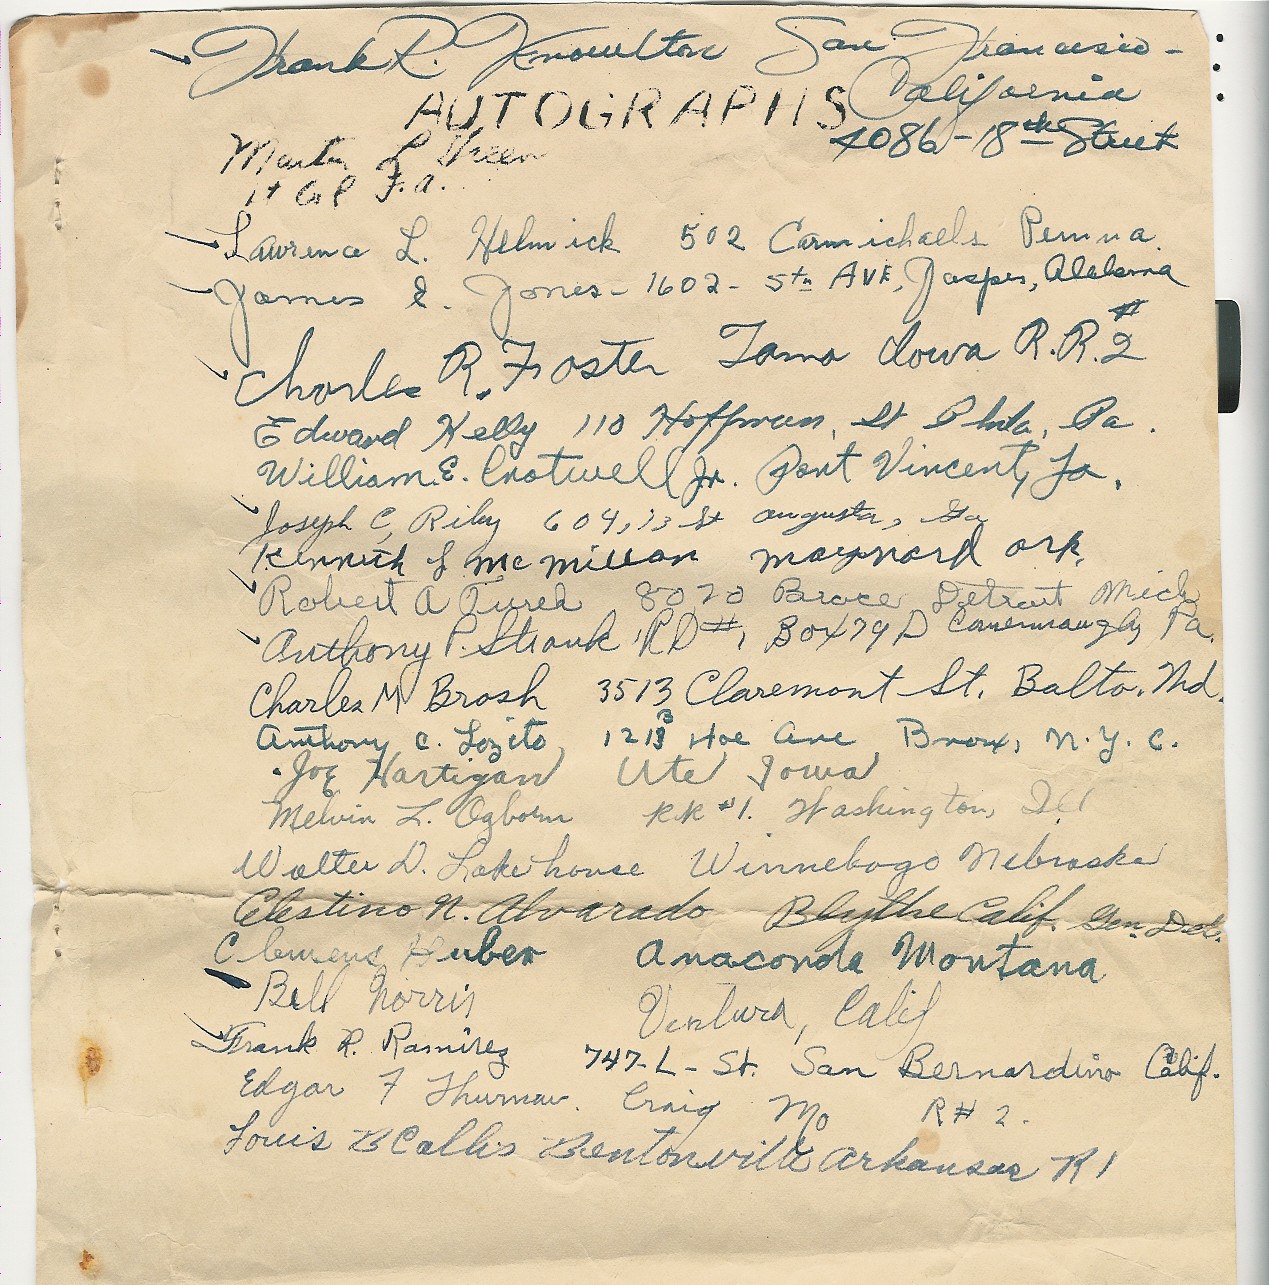 Frank R. Knowlton San Francisco -
California
AUTOGRAPHS
4086 - 18th Street
Martin L Green
1st Col F.A.
Lawrence L. Helmick 502 Carmichaels Penna.
James E. Jones - 1602 - 5th AVE, Jasper, Alabama
Charles R. Foster Tama Iowa R.R. #2
Edward Kelly 110 Hoffman, St Phila, Pa.
William E. Crotwell Jr. Port Vincent, La.
Joseph C, Riley 604, 13 St Augusta, Ga
Kenneth L McMillan Maynard Ark.
Robert A Tureh 8020 Brace Detroit Mich
Anthony P. Strank RD #1, Box 79 D Conemaugh, Pa.
Charles M Brosh 3513 Claremont St. Balto. Md.
Anthony C. Lozito, 1213 Hoe Ave, Bronx, N.Y.C.
Joe Hartigan Ute Iowa
Melvin L. Ogborn RR #1. Washington, Ill
Walter D. Lakehouse Winnebago Nebraska
Celestino N. Alvarado Blythe Calif. Gen. Del.
Clemens Huber Anaconda Montana
Bill Norris Ventura, Calif
Frank R. Ramirez 747-L-St. San Bernardino Calif.
Edgar F Thurman. Craig Mo R#2.
Louis B Callis Bentonville Arkansas R1